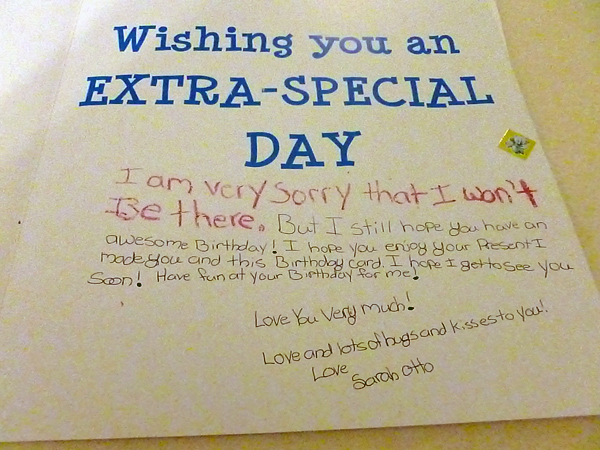 Wishing you an
EXTRA-SPECIAL
DAY
I am very Sorry that I won't
Be there. But I still hope you have an
awesome Birthday! I hope you enjoy your Present I
made you and this Birthday card. I hope I get to see you
Soon! Have fun at your Birthday for me!
Love You Very much!
Love and lots of hugs and kisses to you!
Love
Sarah Otto